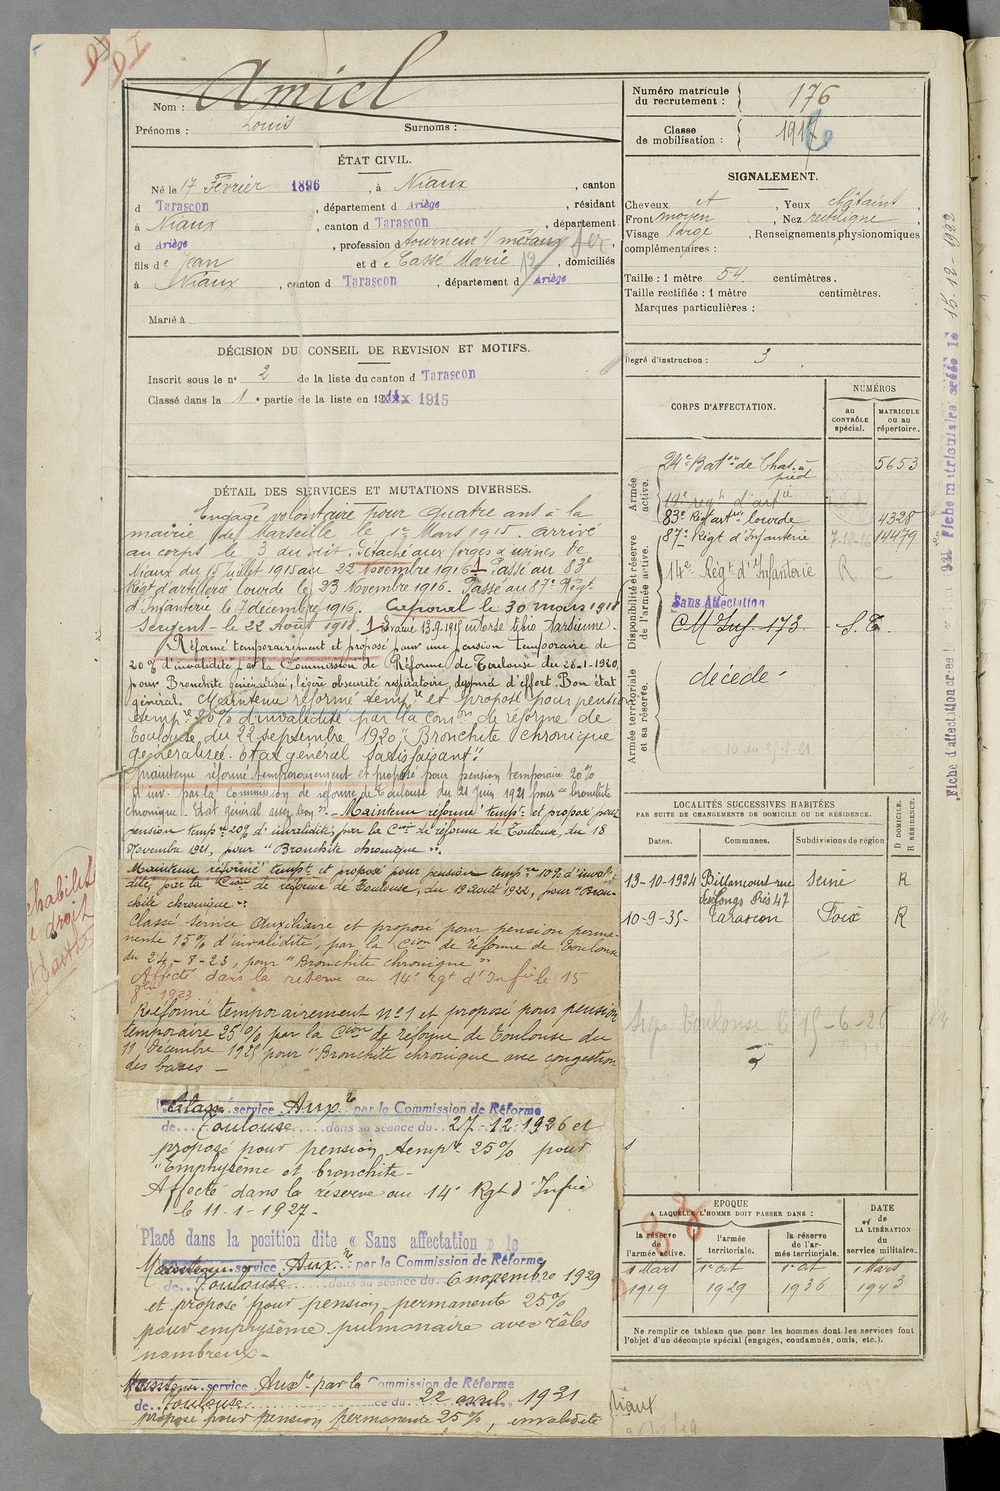 Nom : Amiel
Prénoms : Louis Surnoms :
Numéro matricule du recrutement : 176
Classe de mobilisation : 1916
ÉTAT CIVIL.
Né le 17 Février 1896, à Niaux, canton
d Tarascon, département d Ariège, résidant
à Niaux, canton d Tarascon, département
d Ariège, profession d tourneur s/ métaux
fils de Jean et de Cassé Marie, domiciliés
à Niaux, canton d Tarascon, département d Ariège
Marié à
DÉCISION DU CONSEIL DE REVISION ET MOTIFS.
Inscrit sous le n° 2 de la liste du canton d Tarascon
Classé dans la 1e partie de la liste en 1915
DÉTAIL DES SERVICES ET MUTATIONS DIVERSES.
Engagé volontaire pour quatre ans à la
mairie de Marseille le 1er Mars 1915. arrivé
au corps le 3 du dit. Détaché aux forges et usines de
Niaux du 15 Juillet 1915 au 22 Novembre 1916 1 Passé au 83e
Régt d'artillerie lourde le 23 Novembre 1916. Passé au 87e Régt
d'Infanterie le 7 décembre 1916. Caporal le 30 mars 1918
Sergent le 22 Août 1918. 1 Evacué 13.9.1915 entorse tibio tarsienne.
Réformé temporairement et proposé pour une pension temporaire de
20% d'invalidité par la Commission de Réforme de Toulouse du 28-1-1920,
pour Bronchite généralisée, légère obscurité respiratoire, dyspnée d'effort. Bon état
général. Maintenu réformé tempre et proposé pour pension
tempre 20% d'invalidité par la Comon de réforme de
Toulouse du 22 septembre 1920 "Bronchite chronique
généralisée. Etat général satisfaisant".
Maintenu réformé temporairement et proposé pour pension temporaire 20%
d'inv. par la commission de réforme de Toulouse du 21 Juin 1921 pour "bronchite
chronique. Etat général assez bon". Maintenu réformé tempt et proposé pour
pension tempre 20% d'invalidité, par la Cion de réforme de Toulouse, du 18
Novembre 1921, pour "Bronchite chronique".
Maintenu réformé tempt et proposé pour pension tempre 10% d'invali-
dité, par la Cion de réforme de Toulouse, du 19 août 1922, pour "Bron-
chite chronique".
Classé Service Auxiliaire et proposé pour pension perma-
nente 15% d'invalidité, par la Cion de réforme de Toulouse
du 24-8-23, pour "Bronchite chronique"
Affecté dans la réserve au 14e Rgt d'Infie le 15
1923
Réformé temporairement n°1 et proposé pour pension
temporaire 25% par la Cion de réforme de Toulouse du
11 Décembre 1925 pour "Bronchite chronique avec congestion
des bases -
Classé service Auxre par la Commission de Réforme
de Toulouse dans sa séance du 27-12-1926 et
proposé pour pension tempre 25% pour
"Emphysème et bronchite -
Affecté dans la réserve au 14e Rgt d'Infie
le 11-1-1927-
Placé dans la position dite « Sans affectation » le
Maintenu service Auxre par la Commission de Réforme
de Toulouse dans sa séance du 6 novembre 1929
et proposé pour pension permanente 25%
pour emphysème pulmonaire avec râles
nombreux -
Maintenu service Auxre par la Commission de Réforme
de Toulouse séance du 22 avril 1931
proposé pour pension permanente 25%, invalidité
SIGNALEMENT.
Cheveux et, Yeux châtains,
Front moyen, Nez rectiligne,
Visage large, Renseignements physionomiques
complémentaires :
Taille : 1 mètre 54 centimètres.
Taille rectifiée : 1 mètre centimètres.
Marques particulières :
Degré d'instruction : 3
CORPS D'AFFECTATION.
NUMÉROS
au CONTRÔLE spécial.
MATRICULE ou au répertoire.
Armée active.
24e Baton de Chas. à pied 5653
19e régt d'artie
83e Régt artie lourde 4328
87e Régt d'Infanterie 7-12-16 14479
Disponibilité et réserve de l'armée active.
14e Régt d'Infanterie R C
Sans Affectation
CM Inf. 173 S.C.
Armée territoriale et sa réserve.
décédé
LOCALITÉS SUCCESSIVES HABITÉES
PAR SUITE DE CHANGEMENTS DE DOMICILE OU DE RÉSIDENCE.
Dates. Communes. Subdivisions de région D DOMICILE. R RÉSIDENCE.
13-10-1924 Billancourt rue Seine R
des Longs Prés 47
10-9-35- Tarascon Foix R
Toulouse le 15-6-26
EPOQUE
A LAQUELLE L'HOMME DOIT PASSER DANS :
la réserve de l'armée active.
l'armée territoriale.
la réserve de l'armée territoriale.
DATE de LA LIBÉRATION du service militaire.
1 Mars 1er Oct 1er Oct 1 Mars
1919 1929 1936 1943
Ne remplir ce tableau que pour les hommes dont les services font
l'objet d'un décompte spécial (engagés, condamnés, omis, etc.).
Niaux
Fiche matriculaire créée le 15-12-1922